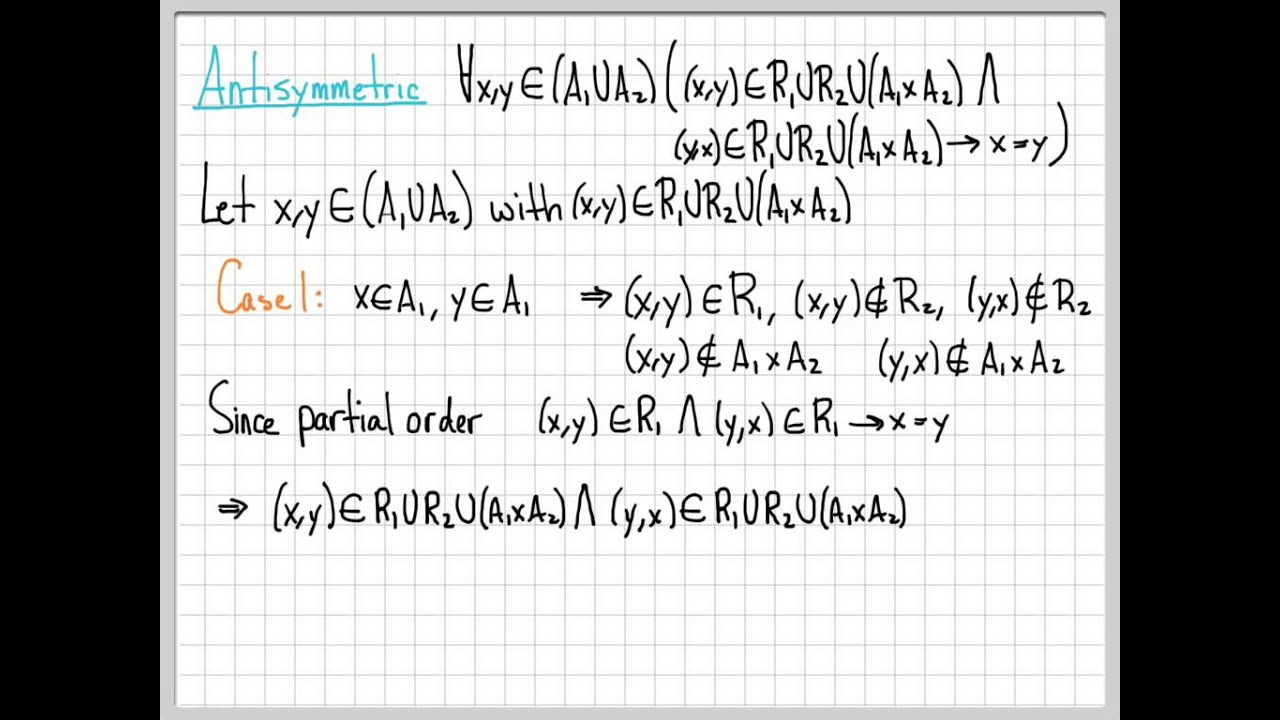 Antisymmetric ∀x,y∈(A₁∪A₂)((x,y)∈R₁∪R₂∪(A₁×A₂) ∧
(y,x)∈R₁∪R₂∪(A₁×A₂)→x=y)
Let x,y∈(A₁∪A₂) with (x,y)∈R₁∪R₂∪(A₁×A₂)
Case 1: x∈A₁, y∈A₁ ⇒ (x,y)∈R₁, (x,y)∉R₂, (y,x)∉R₂
(x,y)∉A₁×A₂ (y,x)∉A₁×A₂
Since partial order (x,y)∈R₁ ∧ (y,x)∈R₁→x=y
⇒ (x,y)∈R₁∪R₂∪(A₁×A₂) ∧ (y,x)∈R₁∪R₂∪(A₁×A₂)